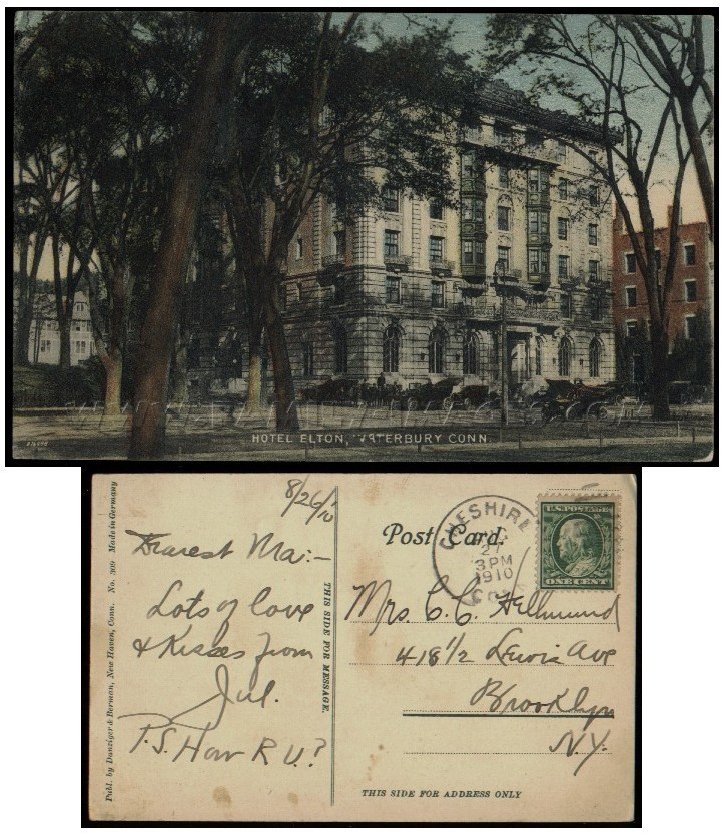 HOTEL ELTON, WATERBURY CONN.
8/26/10
Dearest Ma:-
Lots of love
& Kisses from
Jul.
P.S. How R U.?
Publ. by Danziger & Berman, New Haven, Conn. No. 309 Made in Germany
THIS SIDE FOR MESSAGE.
Post Card.
CHESHIRE
AUG
27
3 PM
1910
CONN
U.S. POSTAGE
ONE CENT
Mrs. C. C.
418 1/2 Lewis Ave
Brooklyn
N.Y.
THIS SIDE FOR ADDRESS ONLY